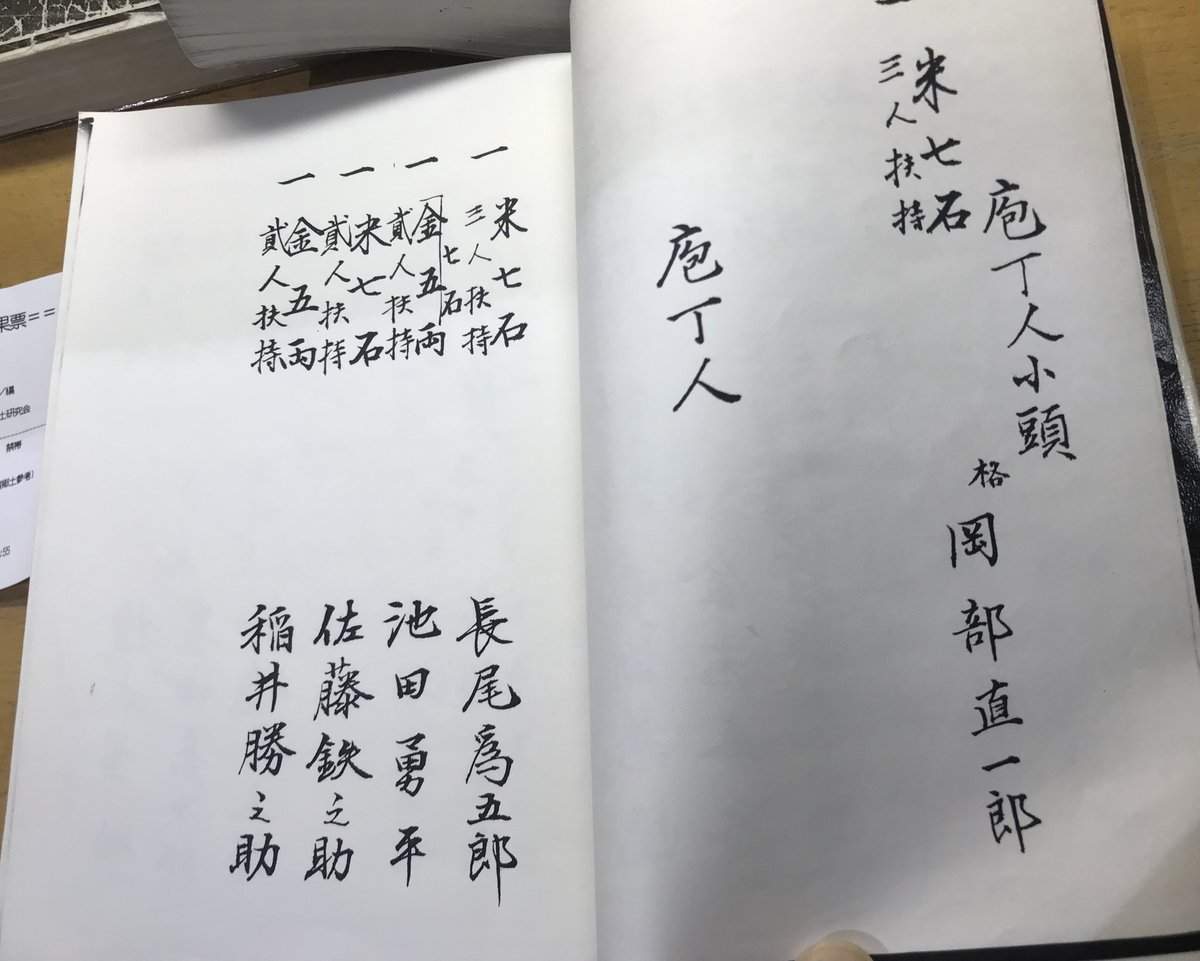 一
米七石
三人扶持
庖丁人小頭
格
岡部直一郎
庖丁人
一 米七石
三人扶持
長尾爲五郎
一 金五両
七石
貳人扶持
池田勇平
一 米七石
貳人扶持
佐藤鉄之助
一 金五両
貳人扶持
稲井勝之助
果票==
/編
土研究会
禁帯
郷土参考)
:55